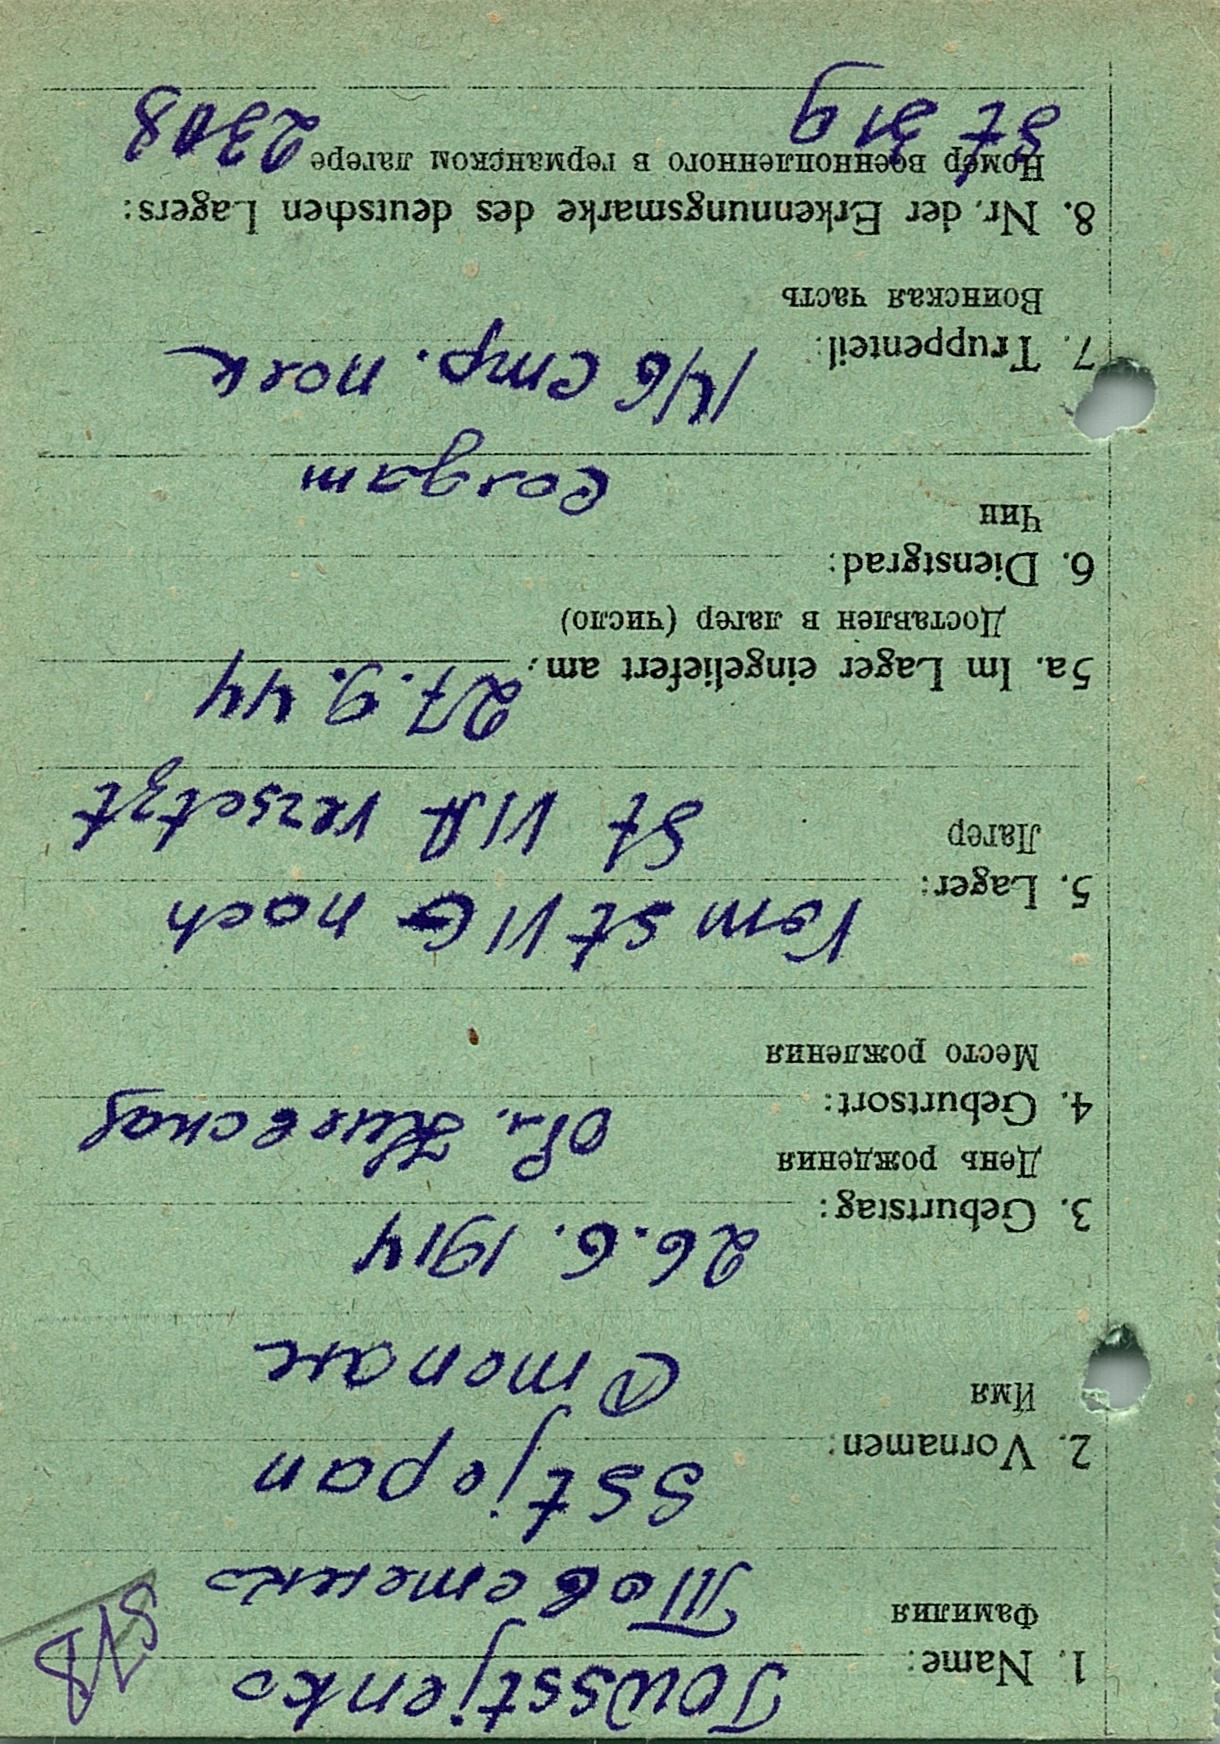 1. Name: Towsstjenko
Фамилия Товстенко
2. Vornamen: Sstjepan
Имя Степан
3. Geburtstag: 26.6.1914
День рождения
4. Geburtsort: Обл. Киевская
Место рождения
5. Lager: Vom St VI G nach
Лагер St VI A versetzt
5a. Im Lager eingeliefert am: 27.9.44
Доставлен в лагер (число)
6. Dienstgrad:
Чин Солдат
7. Truppenteil: 146 стр. полк
Воинская часть
8. Nr. der Erkennungsmarke des deutschen Lagers:
Номер военнопленного в германском лагере
St 319 2308